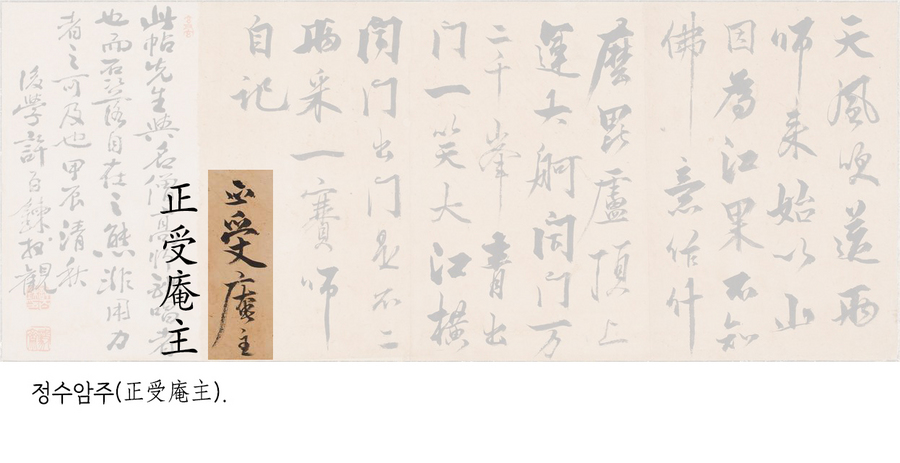 天風吹送兩
師来始以山
因為江果不知
佛意作什
麼毘盧頂上
運大舸閉門万
二千峯青出
门一笑大江橫
閉門出門是不二
兩采一賽師
自記
正受庵主
正受庵主
此帖先生與名僧
也而磊落自在之態非用力
者之可及也甲辰清秋
後學許百鍊拜觀
정수암주(正受庵主).